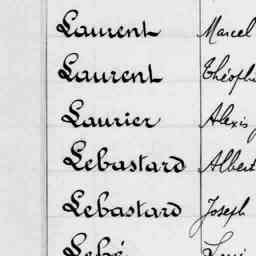 Laurent Marcel
Laurent
Laurier Alexis
Lebastard Albert
Lebastard Joseph
Lebé